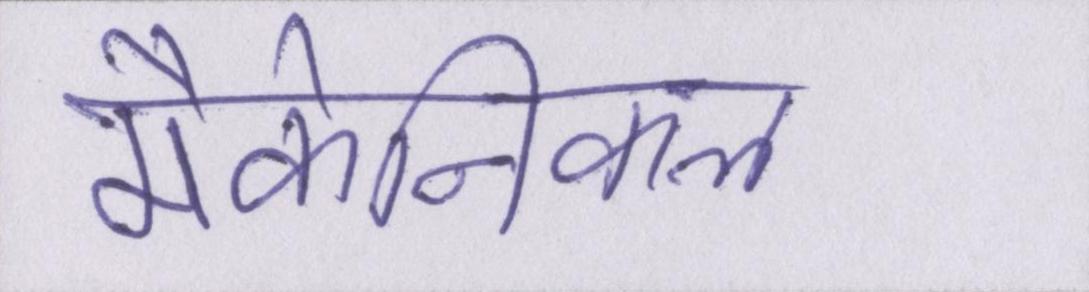 मैकेनिकल